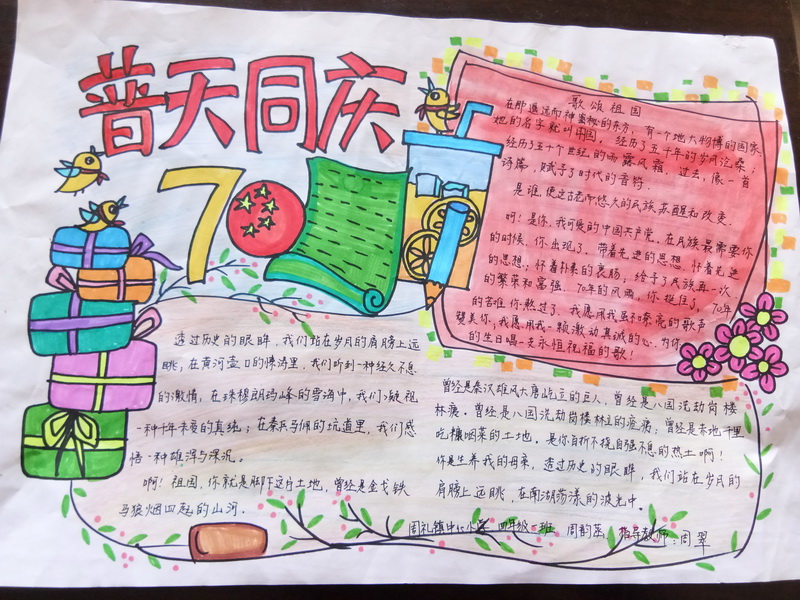 普天同庆
70
歌颂祖国
在那遥远而神蜜秘的东方，有一个地大物博的国家
她的名字就叫中国。经历了五千年的岁月沧桑；
经历了五十个世纪的雨露风霜。过去，像一首
诗篇，赋予了时代的音符。
是谁，使这古老而悠久的民族苏醒和改变。
啊！是你，我可爱的中国共产党。在民族最需要你
的时候，你出现了。带着先进的思想，怀着先进
的思想；怀着朴素的衷肠，给予了民族再一次
的繁荣和富强。70年的风雨，你挺住了，70年
的苦难你熬过了。我愿用我虽不嘹亮的歌声
赞美你，我愿用我一颗激动真诚的心，为你
的生日唱一支永恒祝福的歌！
透过历史的眼眸，我们站在岁月的肩膀上远
眺，在黄河壶口的惊涛里，我们听到一种经久不息
的激情，在珠穆朗玛峰的雪海中，我们凝视
一种千年未变的真纯；在秦兵马俑的坑道里，我们感
悟一种雄浑与深沉。
啊！祖国，你就是脚下这片土地，曾经是金戈铁
马狼烟四起的山河。
曾经是秦汉雄风大唐屹立的巨人，曾经是八国洗劫岗楼
林疾。曾经是八国洗劫岗楼林立的疮痍，曾经是赤地千里
吃糠咽菜的土地。是你自折不挠自强不息的热土啊！
你是生养我的母亲，透过历史的眼眸，我们站在岁月的
肩膀上远眺，在南湖荡漾的波光中。
周礼镇中心小学 四年级一班 周韵 指导教师：周翠